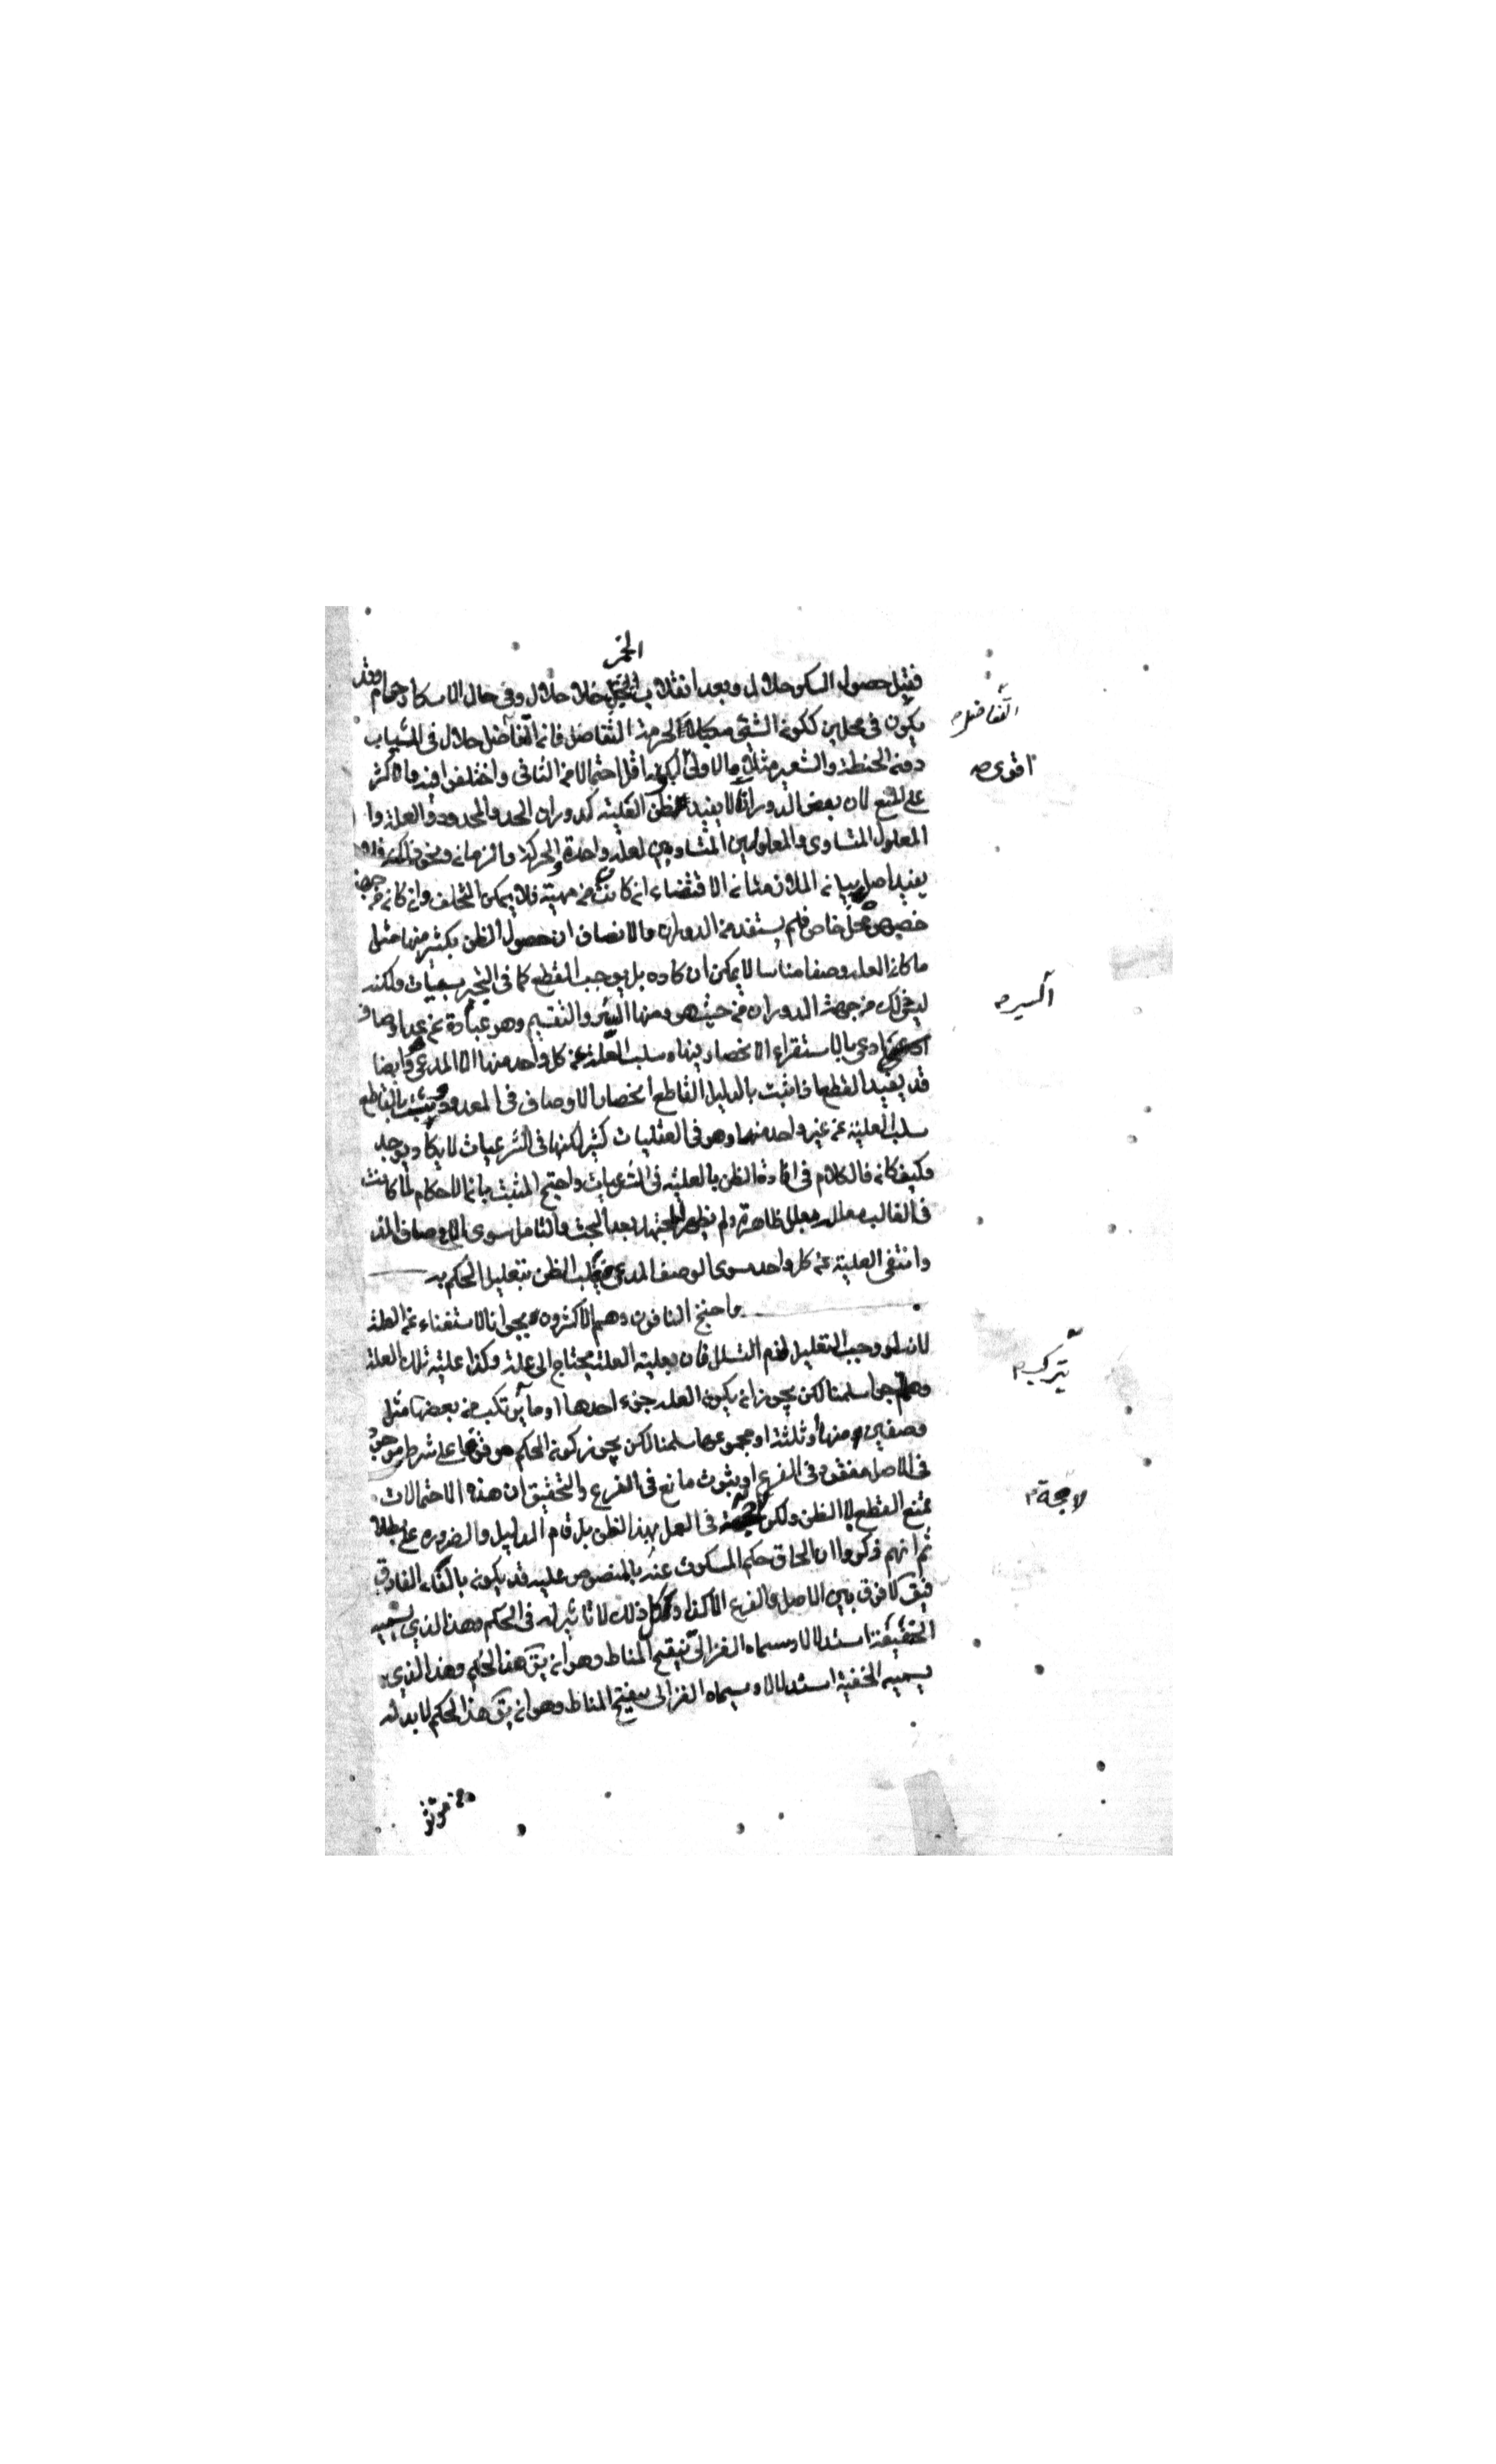 الخمر
فقبل حصول السكر حلال وبعد انقلاب الخمر خلا حلال وفي حال الاسكار حرام وقد
يكون في محلين ككونه الشئ مكيلا لحرمة التفاضل فان التفاضل حلال في الثياب
دون الحنطة والشعير مثلا والاول لكونه اقل احتمالا من الثاني واختلفوا فيه والاكثر
التفاضل
اقوى
على المنع لان بعض الدورانات لا يفيد ظن العلية كدوران الحد والمحدود والعلة وا
المعلول المتساوي والمعلولين المتساويين لعلة واحدة والحركة والزمان ونحو ذلك
يفيد اصل بيان الملازمة ان الاقتضاء ان كانت من مهية فلا يمكن التخلف وان كان من جهة
خصوص محل خاص فلم يستفد من الدوران والانصاف ان حصول الظن بكثير منها مثل
ما كان العلة وصفا مناسبا لا يمكن انكاره بل يوجب القطع كما في التجربيات ولكنه
ليس ذلك من جهة الدوران من حيث هو ومنها السبر والتقسيم وهو عبارة عن عد اوصاف
السبر
ادعى بالاستقراء الانحصار فيها وسلب العلة عن كل واحد منها الا المدعى وايضا
قد يفيد القطع اذا ثبت بالدليل القاطع انحصار الاوصاف في المعدود وثبت بالقاطع
سلب العلية عن غير واحد منها وهو في العقليات كثير لكنها في الشرعيات لا يكاد يوجد
وكيف كان فالكلام في افادة الظن بالعلية في الشرعيات واحتج المثبت بان الاحكام لما كانت
في الغالب معللة بعلل ظاهرة ولم يظهر للمجتهد بعد البحث والتامل سوى الاوصاف المذ
وانتفى العلية عن كل واحد سوى الوصف المدعى فيغلب الظن بتعليل الحكم به
واحتج النافون وهم الاكثرون بجواز الاستغناء عن العلة
لانه لو وجب التعليل لزم التسلسل فان علية العلة يحتاج الى علة وكذا علية تلك العلة
وهلم جرا سلمنا لكن يجوز ان يكون العلة جزء احدها او ما يتركب من بعضها مثل
يتركب
وصفين منها او ثلثة او مجموعها سلمنا لكن يجوز كون الحكم موقوفا على شرط موجود
في الاصل مفقود في الفرع او ثبوت مانع في الفرع والتحقيق ان هذه الاحتمالات
تمنع القطع لا الظن ولكن لا حجة في العمل بهذا الظن بل قام الدليل والضرورة على بطلا
لا حجة
ثم انهم ذكروا ان الحاق حكم المسكوت عنه بالمنصوص عليه قد يكون بالغاء الفارق
فيق لا فرق بين الاصل والفرع الا كذا وكل ذلك لا تاثير له في الحكم وهذا الذي يسميه
الحنفية استدلالا وسماه الغزالي تنقيح المناط وهو ان يق هذا الحكم وهذا الذي
يسميه الحنفية استدلالا وسماه الغزالي تنقيح المناط وهو ان يق هذا الحكم لا بد له
من مؤثر